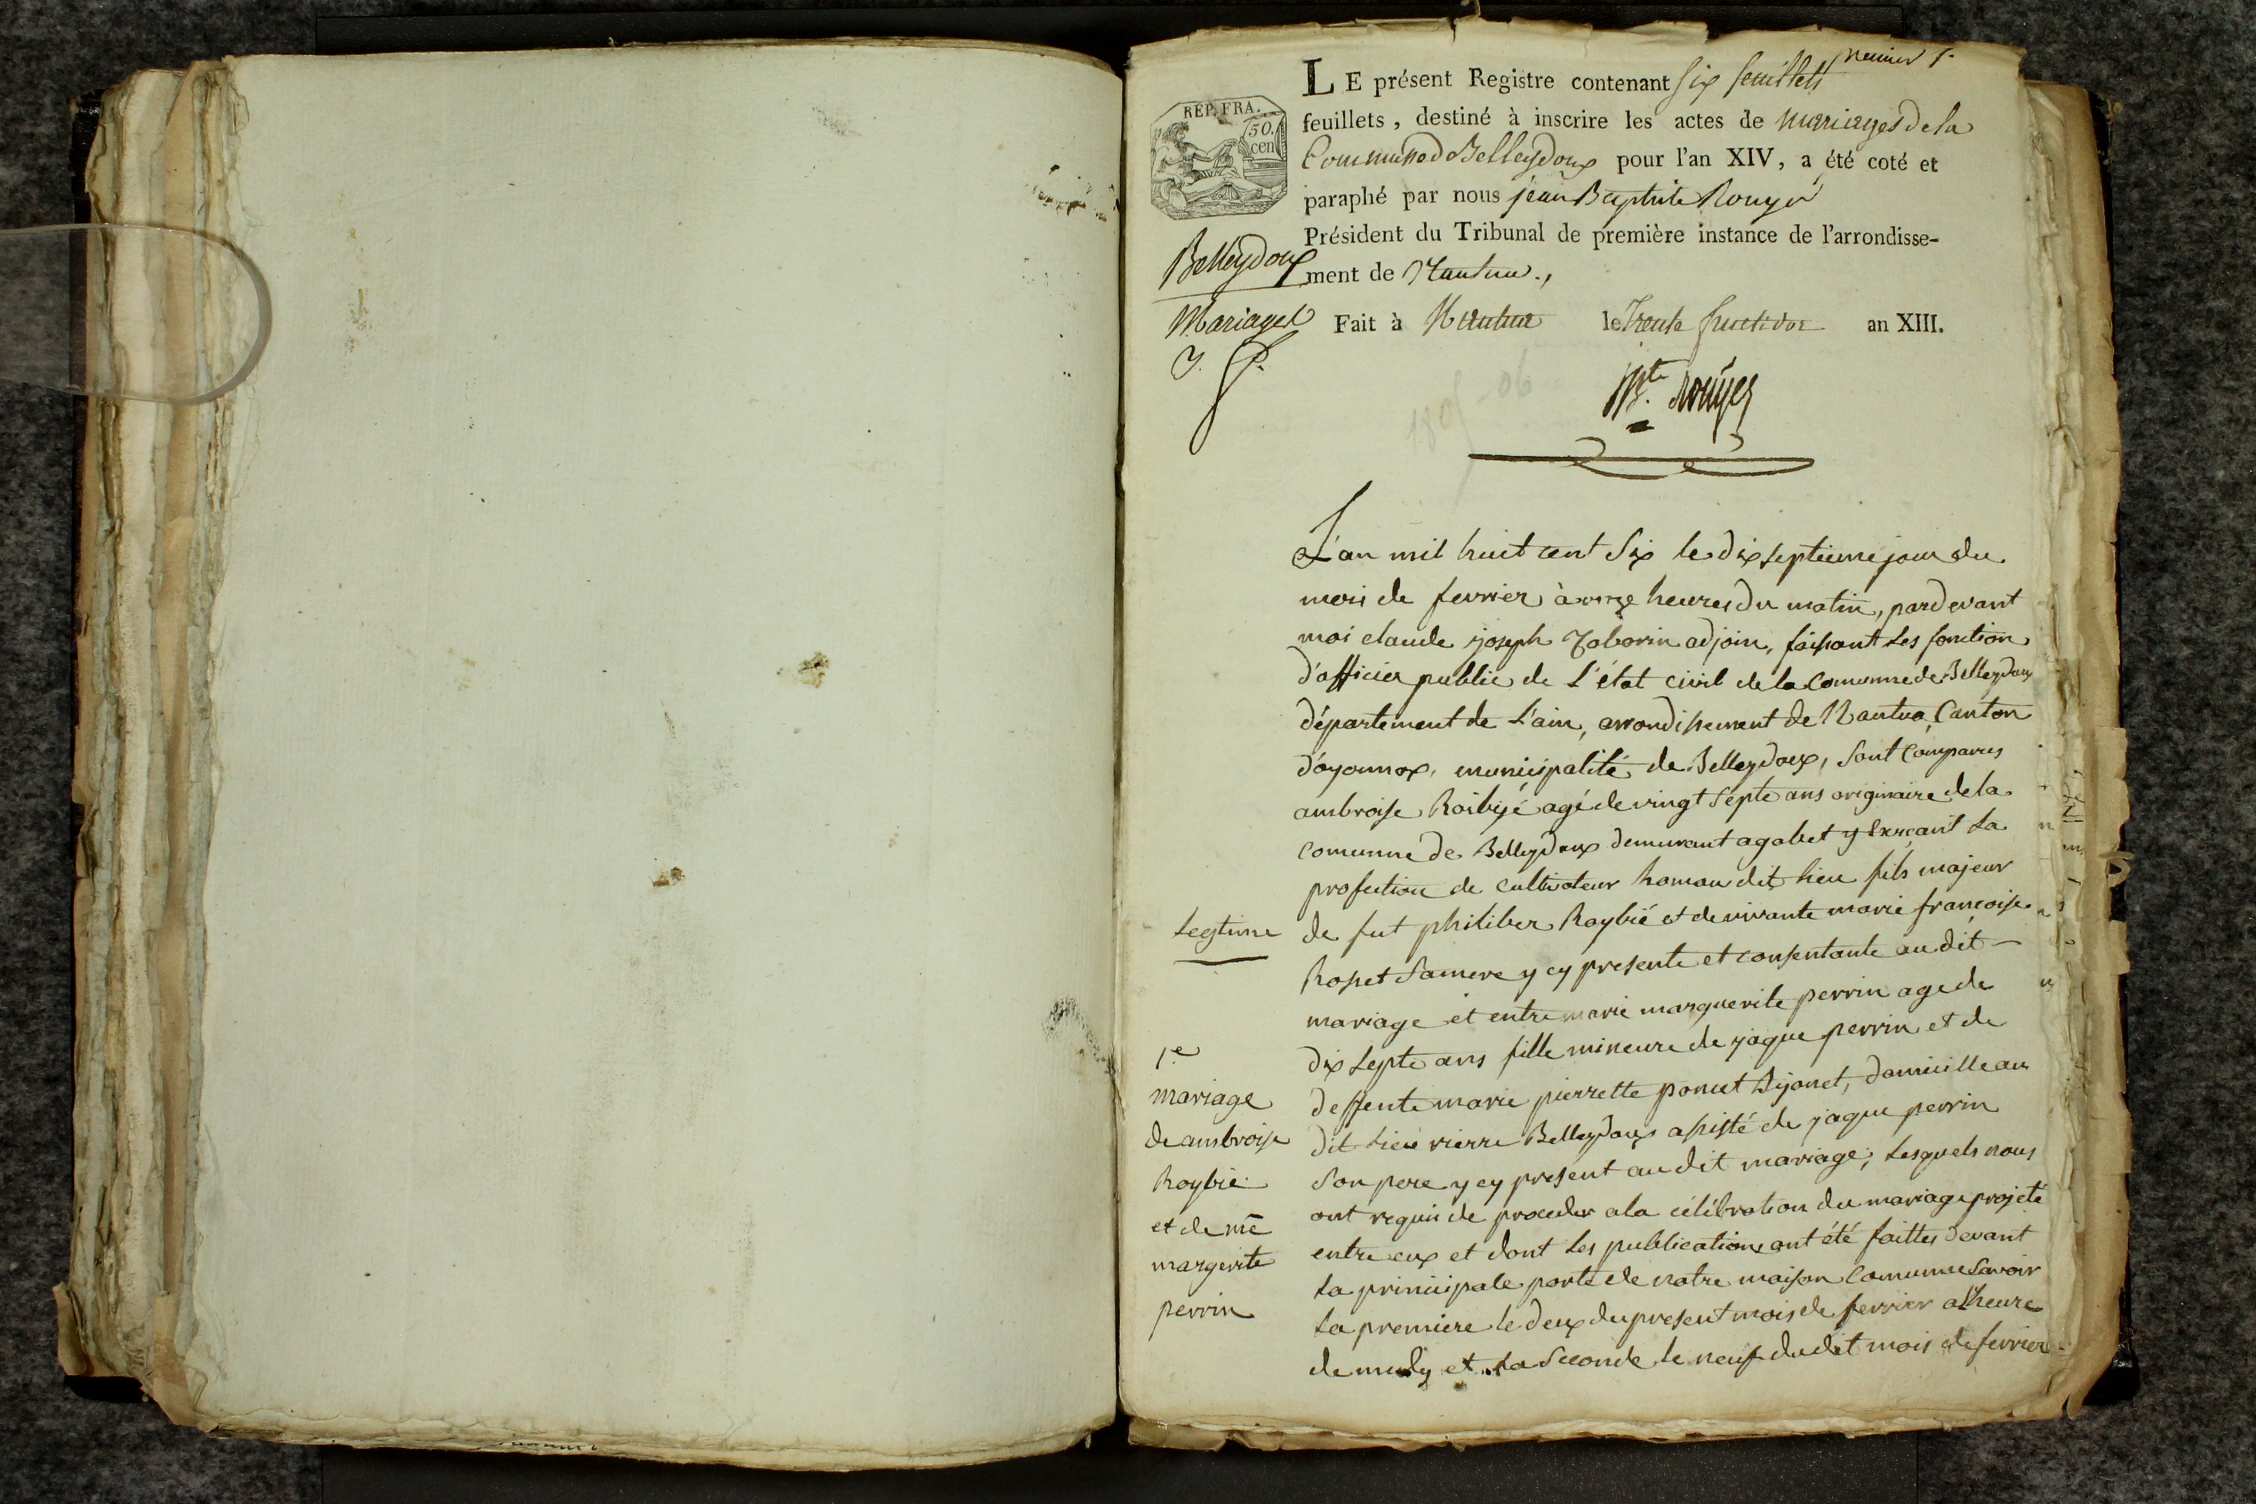 premier f.
LE présent Registre contenant six feuillets
feuillets, destiné à inscrire les actes de mariages de la
Commune de Belleydoux pour l'an XIV, a été coté et
paraphé par nous jean Baptiste Rouyer
Président du Tribunal de première instance de l'arrondisse-
ment de Nantua.,
Fait à Nantua le Trente fructidor an XIII.
REP. FRA.
50.
cen
Belleydoux
Mariages
Bte. Rouyer
1805-06
L'an mil huit cent Six le dix septieme jour du
mois de fevrier à onze heures du matin, pardevant
moi claude joseph Taborin adjoin, faisant les fonction
d'officier public de L'état civil de la Comunne de Belleydoux
département de L'ain, arrondissement de Nantua, Canton
d'oyonnax, municipalité de Belleydoux, Sont Comparus
ambroise Roibyé agé de vingt septe ans originaire de la
comunne de Belleydoux demurant a gobet y Exrçant La
profection de cultivateur homau dit lieu fils majeur
de fut philiber Roybié et de vivante marie francoise
Rosset Samere y cy presente et consentante au dit
mariage et entre marie marguerite perrin age de
dix septe ans fille mineure de jaque perrin et de
deffente marie pierrette poncet Bijonet, domicille au
dit Lieu vierre Belleydoux assisté de jaque perrin
Son pere y cy present au dit mariage, Lesquels nous
ont requis de proceder a la célébration du mariage projeté
entre eux et dont Les publications ont été faittes devant
La principale porte de notre maison Comunne Savoir
La premiere le deux du present mois de fevrier a Lheure
de midy et La Seconde le neuf du dit mois de fevrier
Legtime
1e
mariage
de ambroise
Roybié
et de me
margerite
perrin